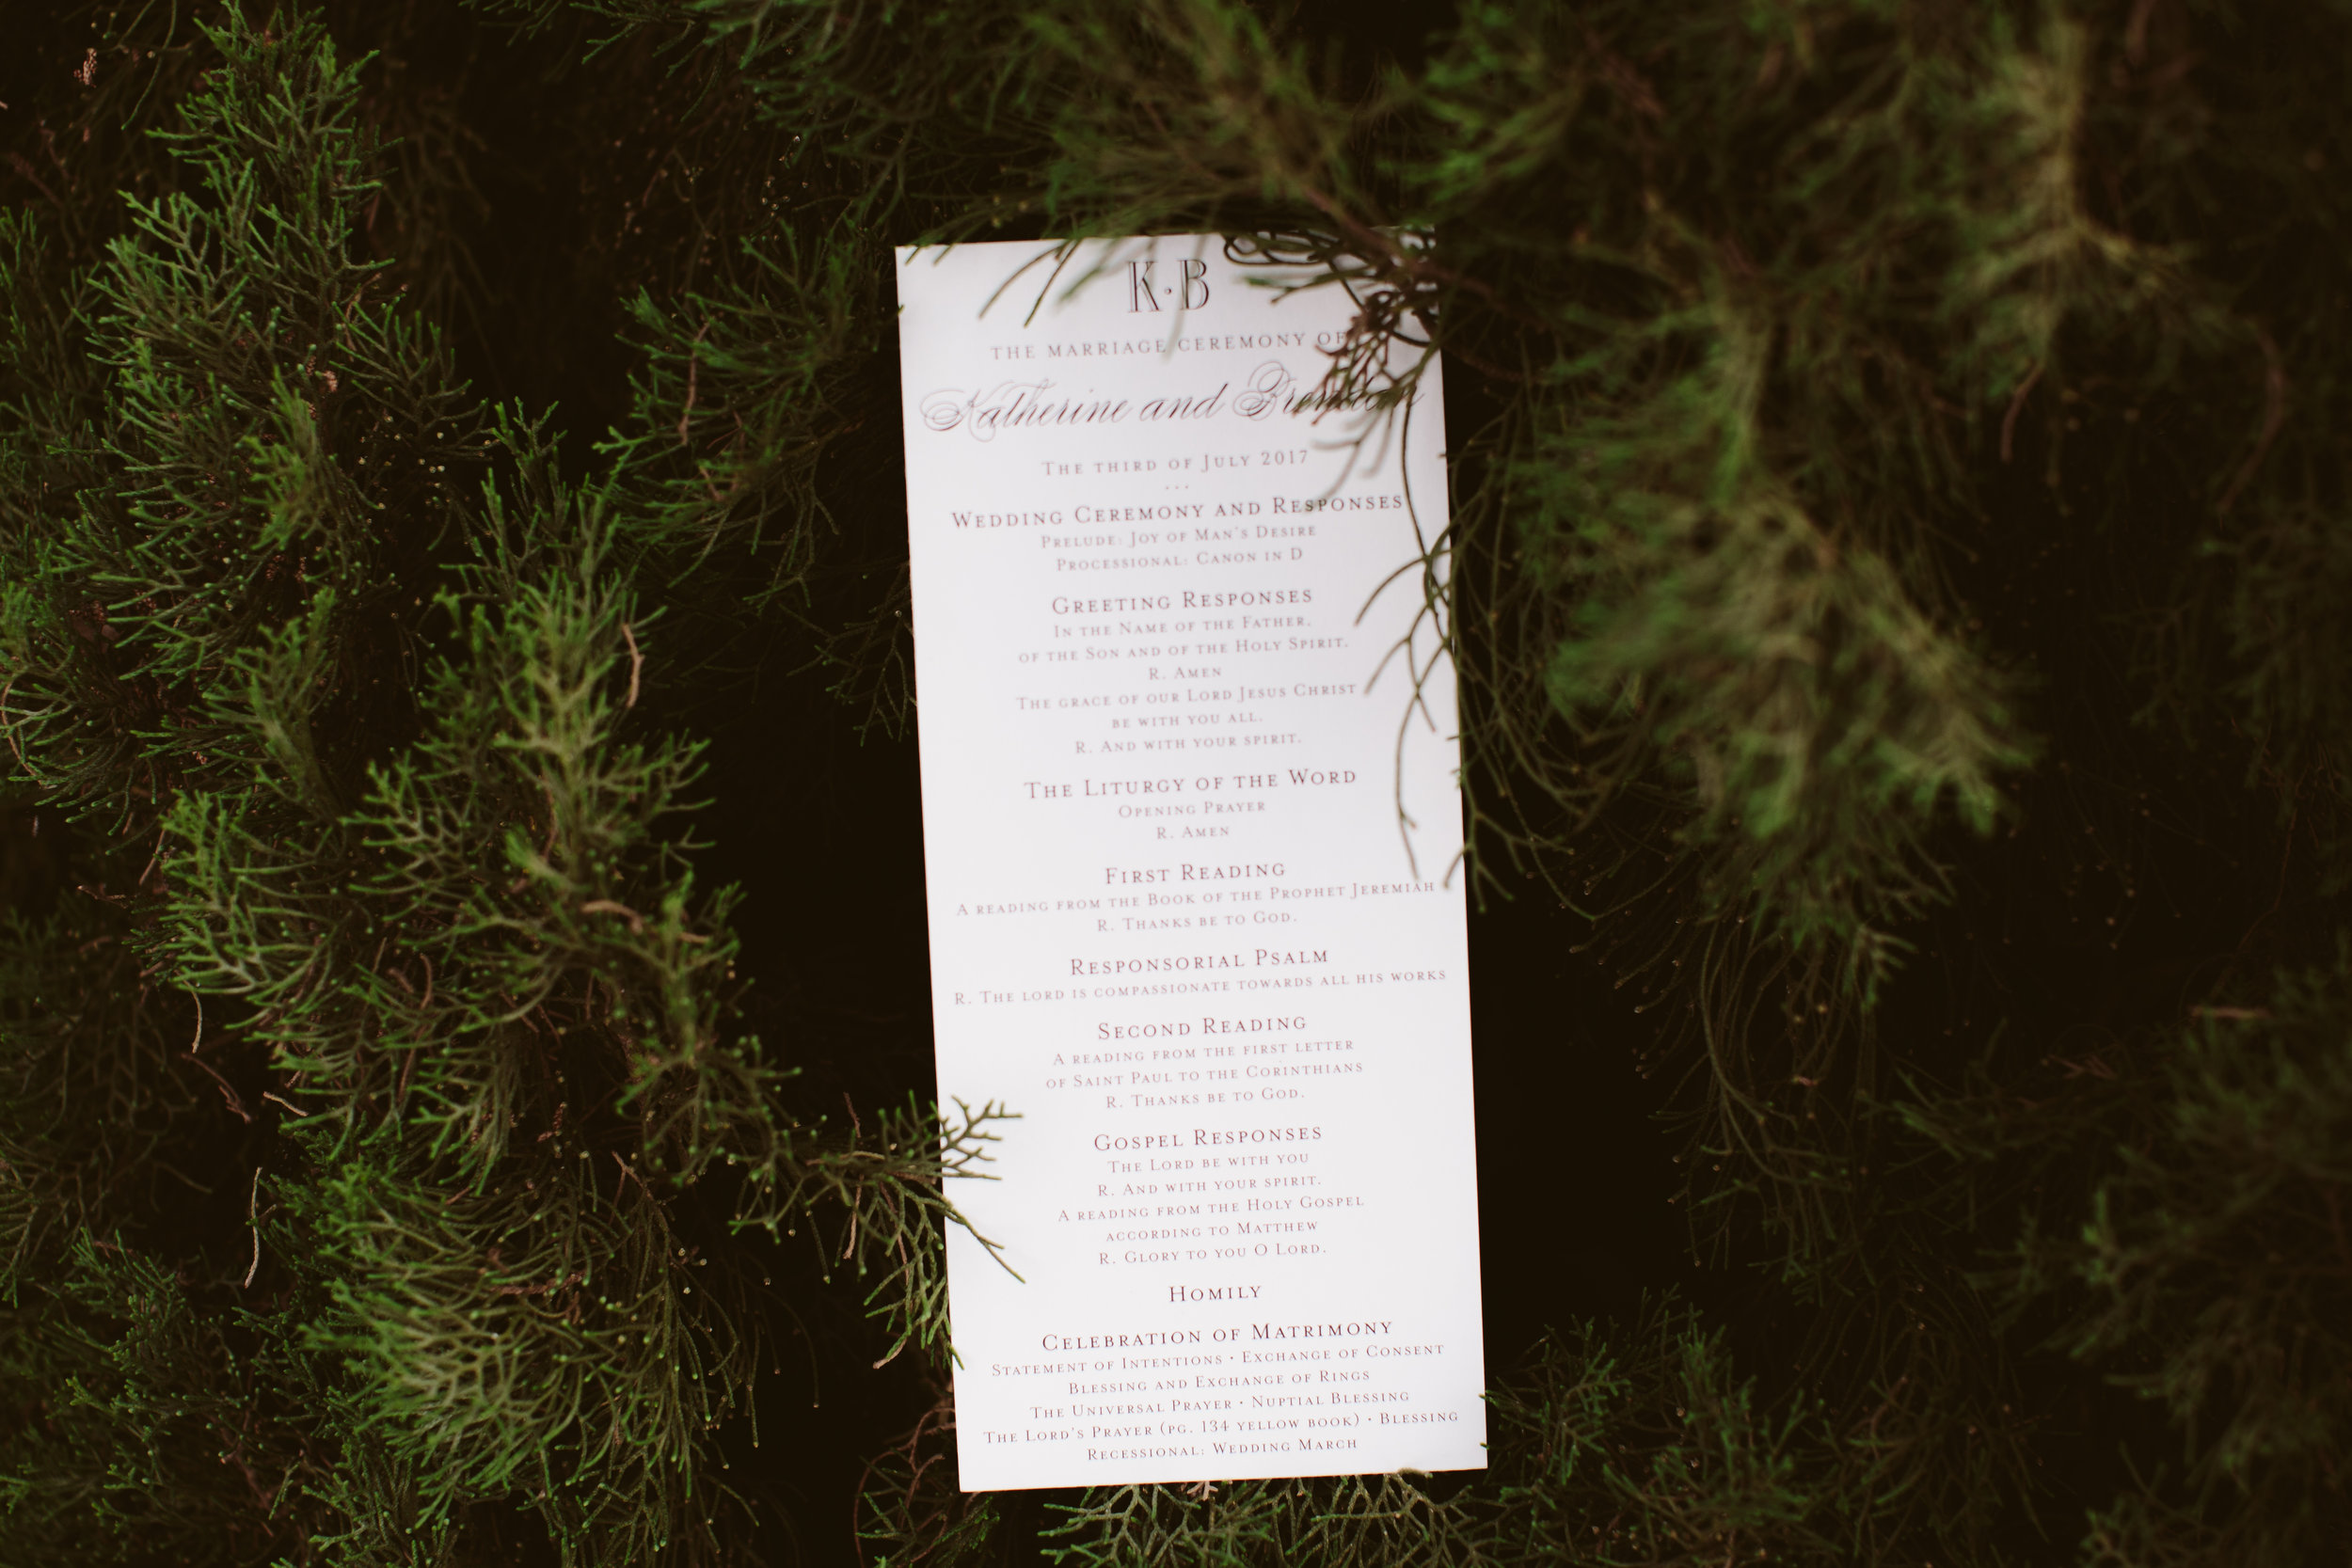 K·B
THE MARRIAGE CEREMONY OF
Katherine and Brendan
THE THIRD OF JULY 2017
...
WEDDING CEREMONY AND RESPONSES
PRELUDE: JOY OF MAN'S DESIRE
PROCESSIONAL: CANON IN D
GREETING RESPONSES
IN THE NAME OF THE FATHER,
OF THE SON AND OF THE HOLY SPIRIT.
R. AMEN
THE GRACE OF OUR LORD JESUS CHRIST
BE WITH YOU ALL.
R. AND WITH YOUR SPIRIT.
THE LITURGY OF THE WORD
OPENING PRAYER
R. AMEN
FIRST READING
A READING FROM THE BOOK OF THE PROPHET JEREMIAH
R. THANKS BE TO GOD.
RESPONSORIAL PSALM
R. THE LORD IS COMPASSIONATE TOWARDS ALL HIS WORKS
SECOND READING
A READING FROM THE FIRST LETTER
OF SAINT PAUL TO THE CORINTHIANS
R. THANKS BE TO GOD.
GOSPEL RESPONSES
THE LORD BE WITH YOU
R. AND WITH YOUR SPIRIT.
A READING FROM THE HOLY GOSPEL
ACCORDING TO MATTHEW
R. GLORY TO YOU O LORD.
HOMILY
CELEBRATION OF MATRIMONY
STATEMENT OF INTENTIONS · EXCHANGE OF CONSENT
BLESSING AND EXCHANGE OF RINGS
THE UNIVERSAL PRAYER · NUPTIAL BLESSING
THE LORD'S PRAYER (PG. 134 YELLOW BOOK) · BLESSING
RECESSIONAL: WEDDING MARCH